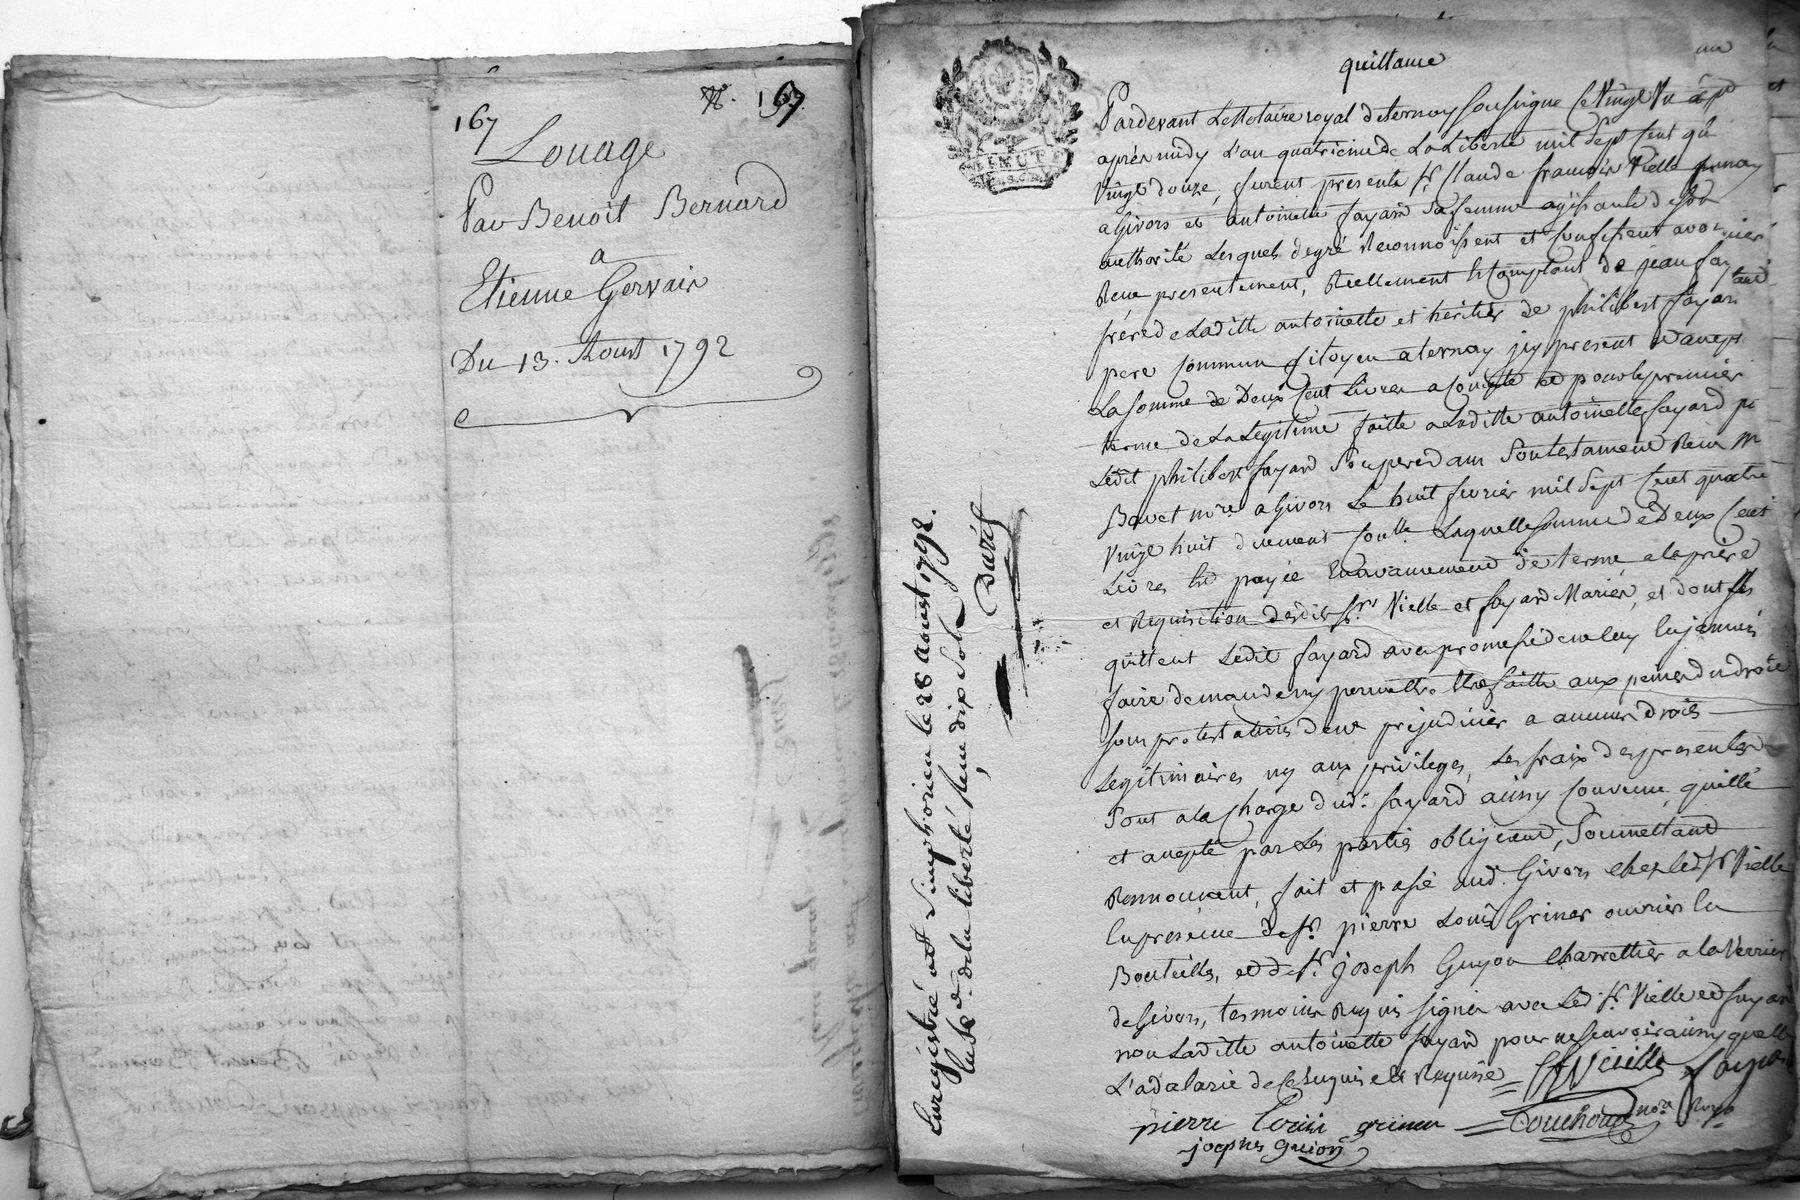 167
N°. 167
Louage
Par Benoit Bernard
a
Etienne Gervais
Du 13. Aoust 1792
quittance
Pardevant Le Notaire royal de ternay soussigne Ce Vingt
après midy L'an quatrieme de La Liberté mil sept Cent
Vingt douze, furent présents Sr. Claude françois Vielle
a Givors et antoinette fayard Sa femme agissante de Son
authorité Lesquels de gré Reconnoissent et Confessent avoir
Reçu presentement, Réellement et Comptant de jean fayard
frère de Laditte antoinette et héritier de philibert fayard
pere Commun Citoyen a ternay jcy present
La Somme de Deux Cent Livres a Compte et pour le premier
terme de La Legitime faitte a Laditte antoinette fayard
Ledit philibert fayard Son pere dans Son testament Reçu
Bavet nore. a Givors Le huit fevrier mil sept Cent quatre
Vingt huit duement Conllé. Laquelle Somme de Deux Cent
Livres Est payée En avancement de terme a la prière
et Requisition desdits Srs. Vielle et fayard Mariés, et dont ils
quittent Ledit fayard avec promesse de ne luy En jamais
faire demande ny permettre Etre faitte aux peines du droit
sous protestations de ne préjudicier a aucuns droits
Legitimaires ny aux privileges, Les fraix des presentes
Sont a la Charge dudt. fayard ainsy Convenu, quitté
et accepté par Les parties obligeant, Soumettant
Renonceant, fait et passé aud. Givors chez Led. Sr Vielle
En presence de Sr. pierre Louis Griner ouvrier En
Bouteilles, et de Sr. joseph Guyon Charrettier a la Verrerie
de Givors, temoins Requis signés avec Led. Sr Vielle et fayard
non Laditte antoinette fayard pour ne scavoir ainsy quelle
L'a declaré de Ce Enquise et Requise
Vielle
fayard
pierre Louis griner
Douchoud nore Royal
josephs Guion
Enregistré a St. Simphorien le 28 Aoust 1792.
lan 4e. de la liberté, Reçu dix Sols